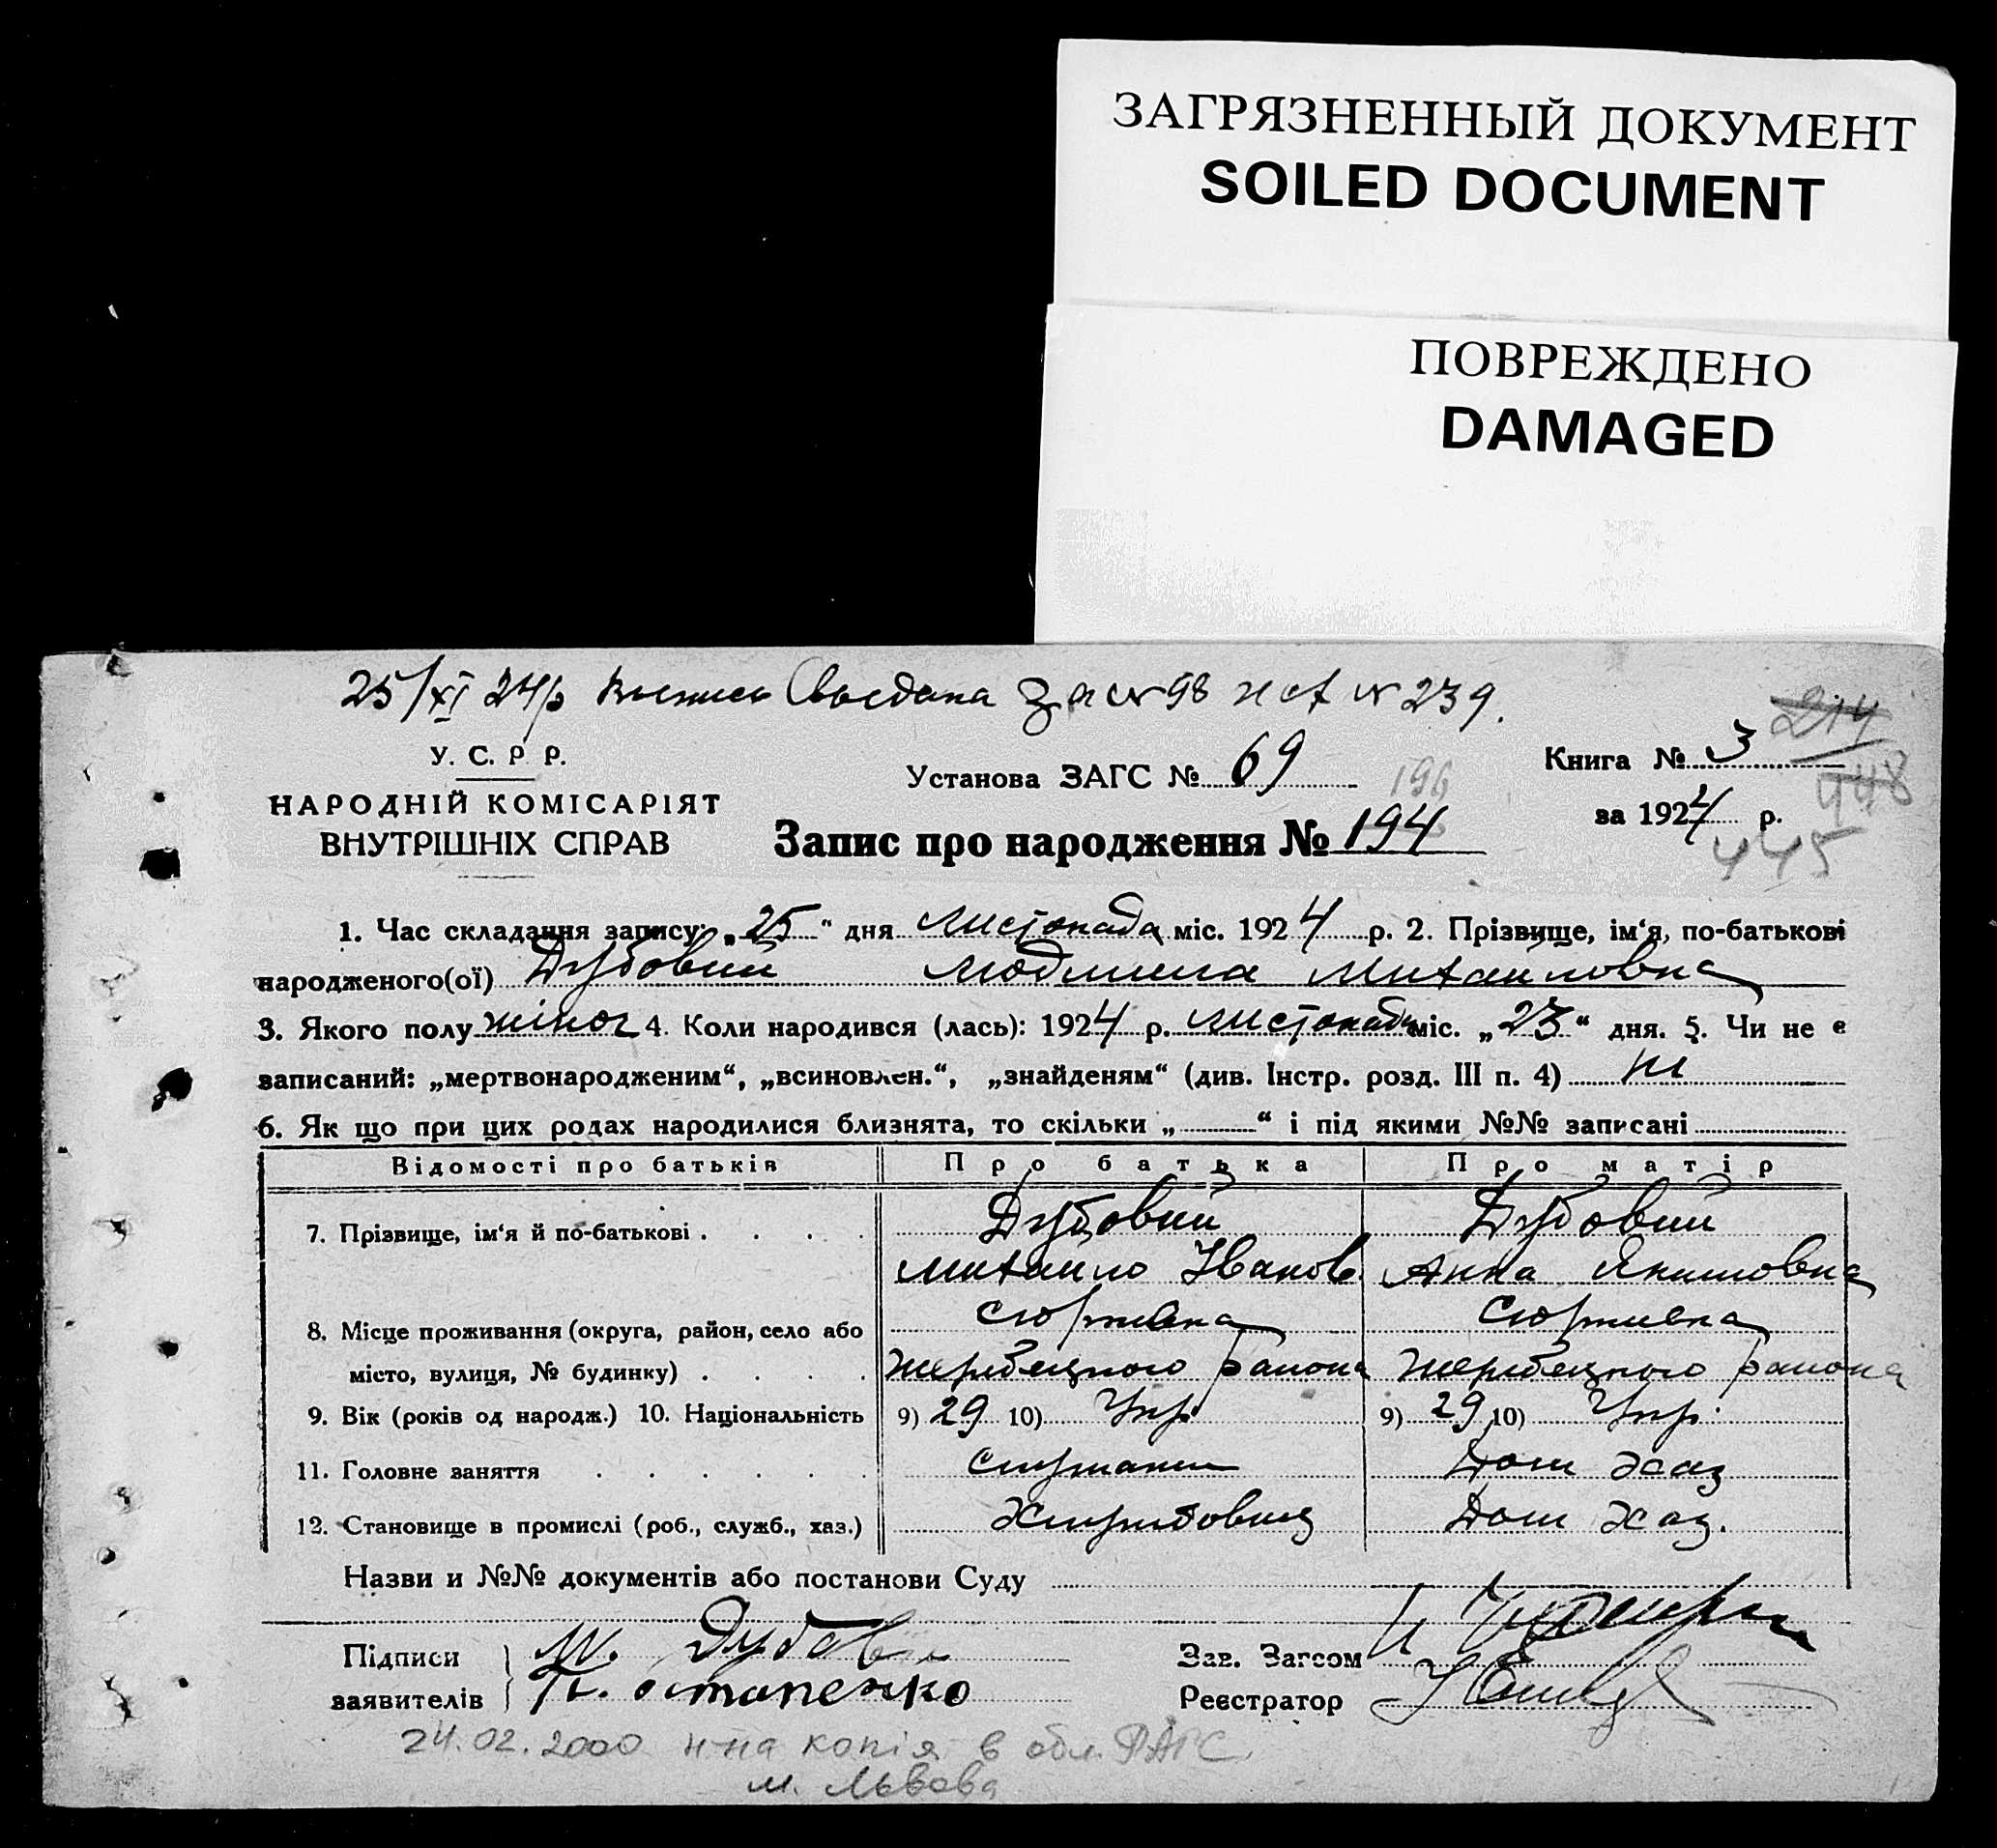 ЗАГРЯЗНЕННЫЙ ДОКУМЕНТ
SOILED DOCUMENT
ПОВРЕЖДЕНО
DAMAGED
25/XI 24р за № 98 № 239.
214
У. С. Р Р.
Установа ЗАГС № 69
196
Книга № 3
448
НАРОДНІЙ КОМІСАРІЯТ
ВНУТРІШНІХ СПРАВ
за 1924 р.
445
Запис про народження № 194
1. Час складання запису: „25“ дня Листопада міс. 1924 р. 2. Прізвище, ім‘я, по-батькові
народженого(ої) Дубовий Людмила Михайловна
3. Якого полу жіноч 4. Коли народився (лась): 1924 р. листопада міс. „23“ дня. 5. Чи не є
записаний: „мертвонародженим“, „всиновлен.“, „знайденям“ (див. Інстр. розд. III п. 4) ні
6. Як що при цих родах народилися близнята, то скільки „ “ і під якими №№ записані
Відомості про батьків Про батька Про матір
7. Прізвище, ім‘я й по-батькові Дубовий Дубовий
Михайло Іванов. Анна Якимовна
8. Місце проживання (округа, район, село або
місто, вулиця, № будинку) Жеребецького района Жеребецького района
9. Вік (років од народж.) 10. Національність 9) 29 10) Укр. 9) 29 10) Укр.
11. Головне заняття Дом хаз
12. Становище в промислі (роб., служб., хаз.) Дом хаз.
Назви и №№ документів або постанови Суду
Підписи М. Дубов
Зав. Загсом
заявителів П. Остапенко
Реєстратор
24.02.2000 н-на копія в обл. РАГС
м. Львова